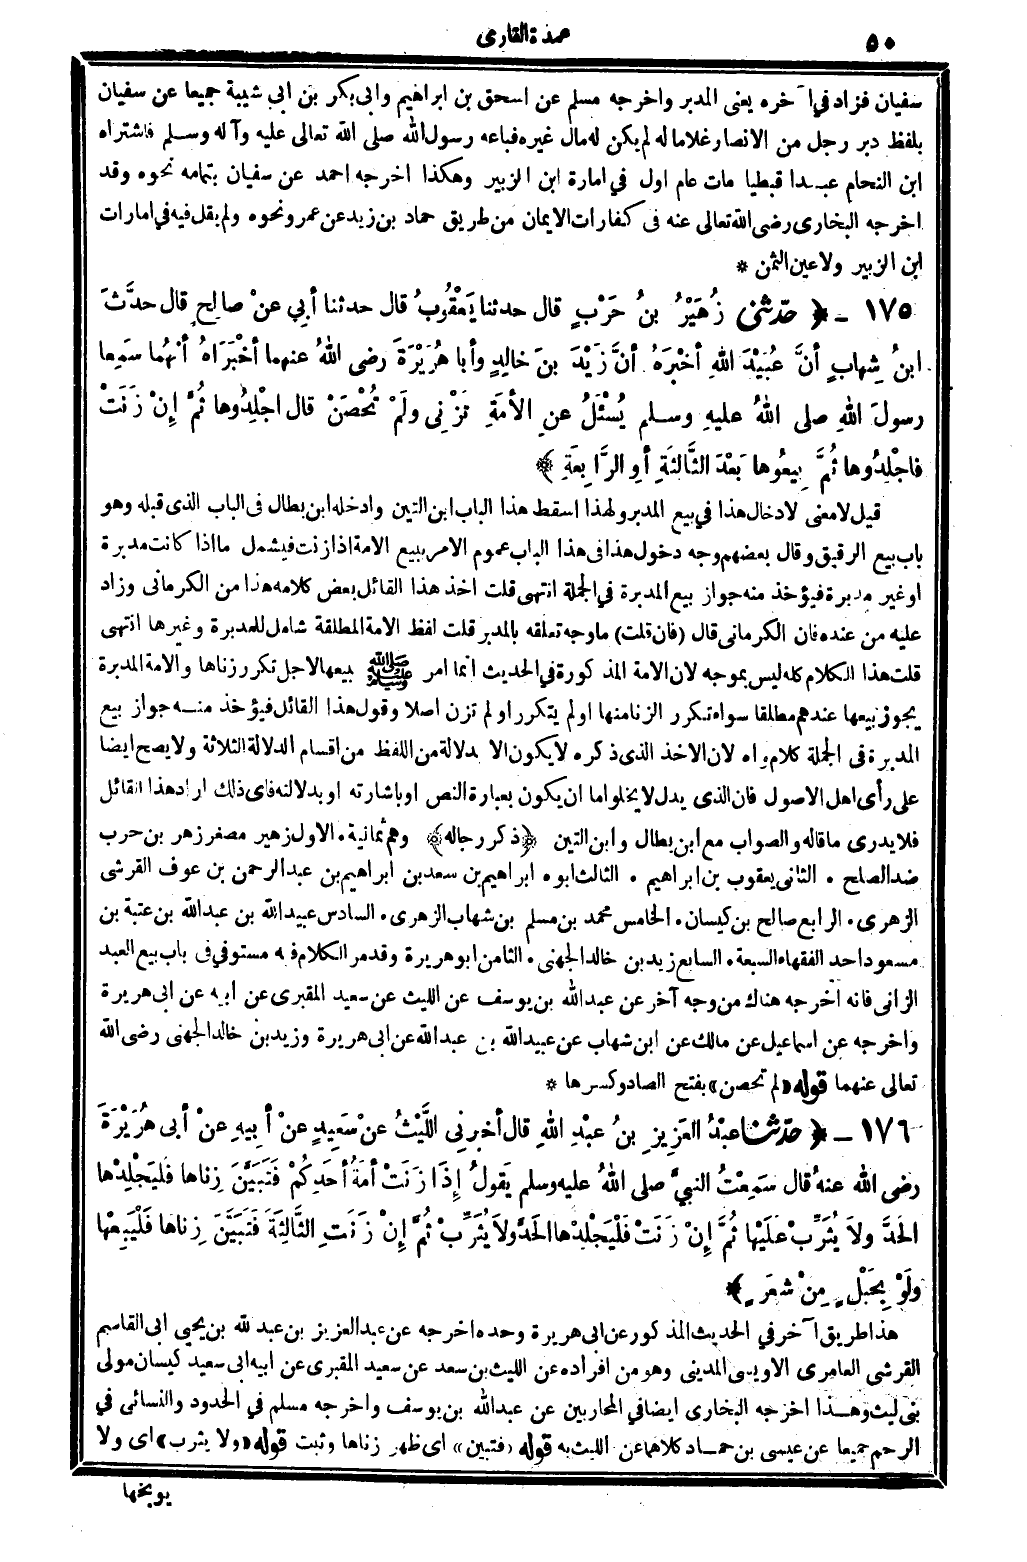 ٥٠
عمدة القارى
سفيان فزاد في آخره يعنى المدبر واخرجه مسلم عن اسحق بن ابراهيم وابى بكر بن ابى شيبة جميعا عن سفيان
بلفظ دبر رجل من الانصار غلاما له لم يكن له مال غيره فباعه رسول الله صلى الله تعالى عليه وآله وسلم فاشتراه
ابن النحام عبدا قبطيا مات عام اول في امارة ابن الزبير وهكذا اخرجه احمد عن سفيان بتمامه نحوه وقد
اخرجه البخارى رضى الله تعالى عنه فى كفارات الايمان من طريق حماد بن زيد عن عمرو نحوه ولم يقل فيه في امارات
ابن الزبير ولا عين الثمن *
١٧٥ - ﴿ حدّثنى زُهَيْرُ بنُ حَرْبٍ قال حدثنا يَعْقُوبُ قال حدثنا أبي عنْ صالِحٍ قال حدَّثَ
ابنُ شِهابٍ أنَّ عُبَيْدَ اللهِ أخْبَرَهُ أنَّ زَيْدَ بنَ خالِدٍ وأبا هُرَيْرَةَ رضى اللهُ عنهما أخْبَرَاهُ أنَّهُما سَمِعا
رسولَ اللهِ صلى اللهُ عليهِ وسلم يُسْئَلُ عنِ الأمَةِ تَزْنِي ولَمْ تُحْصَنْ قال اجْلِدُوها ثُمَّ إنْ زَنَتْ
فاجْلِدُوها ثُمَّ بِيعُوها بَعْدَ الثَّالِثَةِ أوِ الرَّابِعَةِ ﴾
قيل لا معنى لادخال هذا في بيع المدبر ولهذا اسقط هذا الباب ابن التين وادخله ابن بطال فى الباب الذى قبله وهو
باب بيع الرقيق وقال بعضهم وجه دخول هذا فى هذا الباب عموم الامر ببيع الامة اذا زنت فيشمل ما اذا كانت مدبرة
او غير مدبرة فيؤخذ منه جواز بيع المدبرة في الجملة انتهى قلت اخذ هذا القائل بعض كلامه هذا من الكرمانى وزاد
عليه من عنده فان الكرمانى قال (فان قلت) ما وجه تعلقه بالمدبر قلت لفظ الامة المطلقة شامل للمدبرة وغيرها انتهى
قلت هذا الكلام كله ليس بموجه لان الامة المذكورة في الحديث انما امر ﷺ ببيعها لاجل تكرر زناها والامة المدبرة
يجوز بيعها عندهم مطلقا سواء تكرر الزنا منها او لم يتكرر او لم تزن اصلا وقول هذا القائل فيؤخذ منه جواز بيع
المدبرة فى الجملة كلام واه لان الاخذ الذى ذكره لا يكون الا بدلالة من اللفظ من اقسام الدلالة الثلاثة ولا يصح ايضا
على رأى اهل الاصول فان الذى يدل لا يخلو اما ان يكون بعبارة النص او باشارته او بدلالته فاى ذلك اراد هذا القائل
فلا يدرى ما قاله والصواب مع ابن بطال وابن التين ﴿ذكر رجاله﴾ وهم ثمانية. الاول زهير مصغر زهر بن حرب
ضد الصلح. الثانى يعقوب بن ابراهيم. الثالث ابوه ابراهيم بن سعد بن ابراهيم بن عبد الرحمن بن عوف القرشى
الزهرى. الرابع صالح بن كيسان. الخامس محمد بن مسلم بن شهاب الزهرى. السادس عبيد الله بن عبد الله بن عتبة بن
مسعود احد الفقهاء السبعة. السابع زيد بن خالد الجهنى. الثامن ابو هريرة وقد مر الكلام فيه مستوفي فى باب بيع العبد
الزانى فانه اخرجه هناك من وجه آخر عن عبد الله بن يوسف عن الليث عن سعيد المقبرى عن ابيه عن ابى هريرة
واخرجه عن اسماعيل عن مالك عن ابن شهاب عن عبيد الله بن عبد الله عن ابى هريرة وزيد بن خالد الجهنى رضى الله
تعالى عنهما قوله «لم تحصن» بفتح الصاد وكسرها *
١٧٦ - ﴿ حدّثنا عبْدُ العَزِيزِ بنُ عبْدِ اللهِ قال أخبرنِي اللَّيْثُ عنْ سَعِيدٍ عنْ أبِيهِ عنْ أبى هُرَيْرَةَ
رضى الله عنهُ قال سَمِعْتُ النبيَّ صلى اللهُ عليه وسلم يَقولُ إذَا زَنَتْ أمَةُ أحَدِكُمْ فَتَبَيَّنَ زِناها فَلْيَجْلِدْها
الحَدَّ ولاَ يُثَرِّبْ عَلَيْها ثُمَّ إنْ زَنَتْ فَلْيَجْلِدْها الحَدَّ ولاَ يُثَرِّبْ ثُمَّ إنْ زَنَتِ الثَّالِثَةَ فَتَبَيَّنَ زِناها فَلْيَبِعْها
ولَوْ بِحَبْلٍ مِنْ شَعَرٍ ﴾
هذا طريق آخر في الحديث المذكور عن ابى هريرة وحده اخرجه عن عبد العزيز بن عبد الله بن يحيى ابى القاسم
القرشى العامرى الاويسى المدينى وهو من افراده عن الليث بن سعد عن سعيد المقبرى عن ابيه ابى سعيد كيسان مولى
بنى ليث وهذا اخرجه البخارى ايضا في المحاربين عن عبد الله بن يوسف واخرجه مسلم في الحدود والنسائى في
الرجم جميعا عن عيسى بن حماد كلاهما عن الليث به قوله «فتبين» اى ظهر زناها وثبت قوله «ولا يثرب» اى ولا
يوبخها